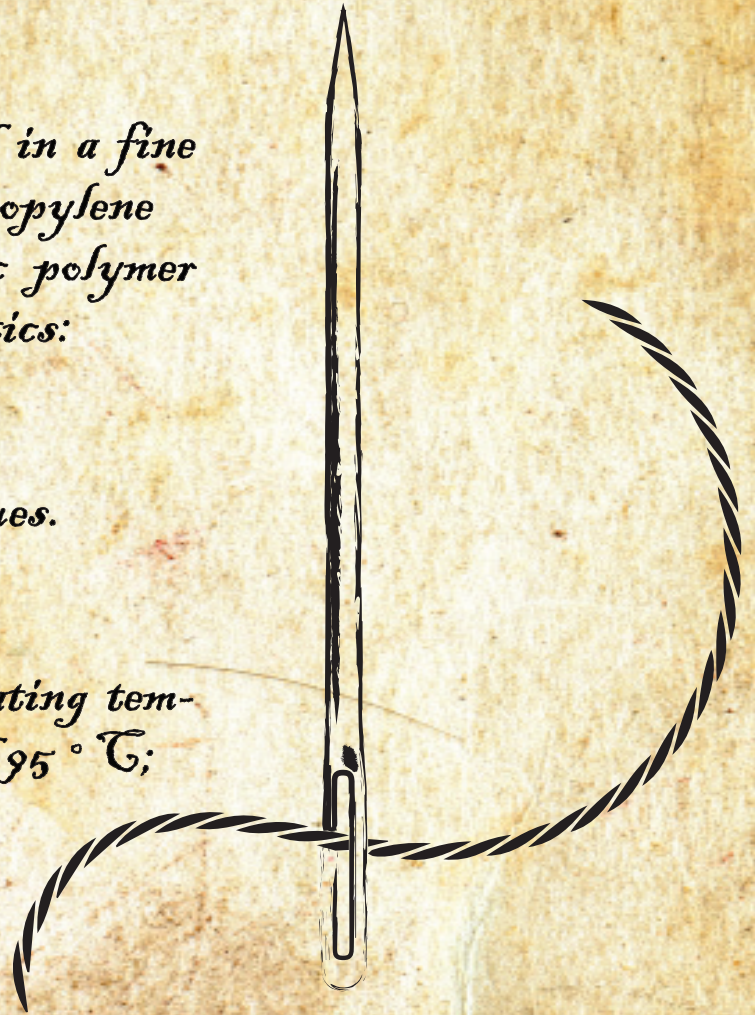 in a fine
opylene
polymer
tics:
ues.
ating tem-
95 ° C;